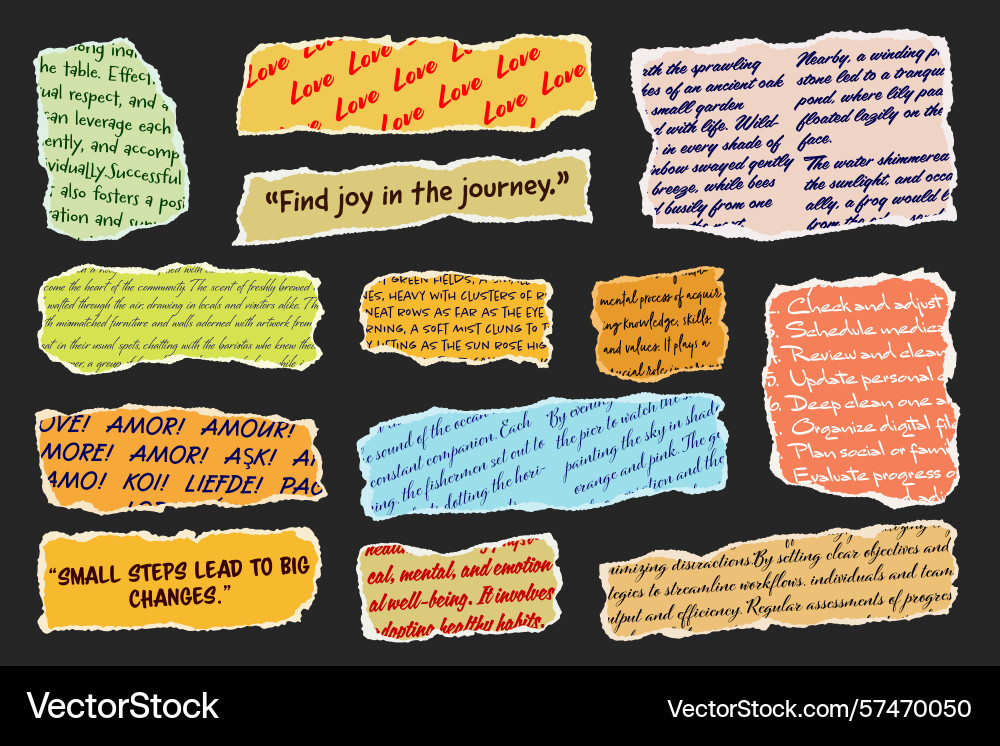 ong indi
he table. Effect
ual respect, and a
can leverage each
ently, and accomp
vidually.Successful
also fosters a posi
ration and
Love Love Love
Love Love Love Love
Love Love Love Love
Love Love Love
“Find joy in the journey.”
rth the sprawling
hes of an ancient oak
small garden
d with life. Wild-
in every shade of
inbow swayed gently
breeze, while bees
d busily from one
Nearby, a winding p
stone led to a tranqu
pond, where lily pad
floated lazily on the
face.
The water shimmered
the sunlight, and occa
ally, a frog would l
come the heart of the community. The scent of freshly brewed
wafted through the air, drawing in locals and visitors alike. Th
th mismatched furniture and walls adorned with artwork from
sat in their usual spots, chatting with the baristas who knew their
GREEN FIELDS,
NES, HEAVY WITH CLUSTERS OF R
NEAT ROWS AS FAR AS THE EYE
RNING, A SOFT MIST CLUNG TO T
Y LIFTING AS THE SUN ROSE HIG
mental process of acquir
ing knowledge, skills,
and values. It plays a
crucial role in
Check and adjust
3. Schedule medica
4. Review and clean
5. Update personal
6. Deep clean one a
Organize digital file
Plan social or fami
Evaluate progress o
OVE! AMOR! AMOUR!
MORE! AMOR! AŞK! A
AMO! KOI! LIEFDE! PAG
e sound of the ocean
constant companion. Each
ing, the fishermen set out to
dotting the hori-
By evening
the pier to watch the
painting the sky in shad
orange and pink. The g
and the
“SMALL STEPS LEAD TO BIG
CHANGES.”
cal, mental, and emotion
al well-being. It involves
adopting healthy habits,
nimizing distractions.By setting clear objectives and
tegies to streamline workflows, individuals and team
utput and efficiency. Regular assessments of progres
VectorStock
VectorStock.com/57470050